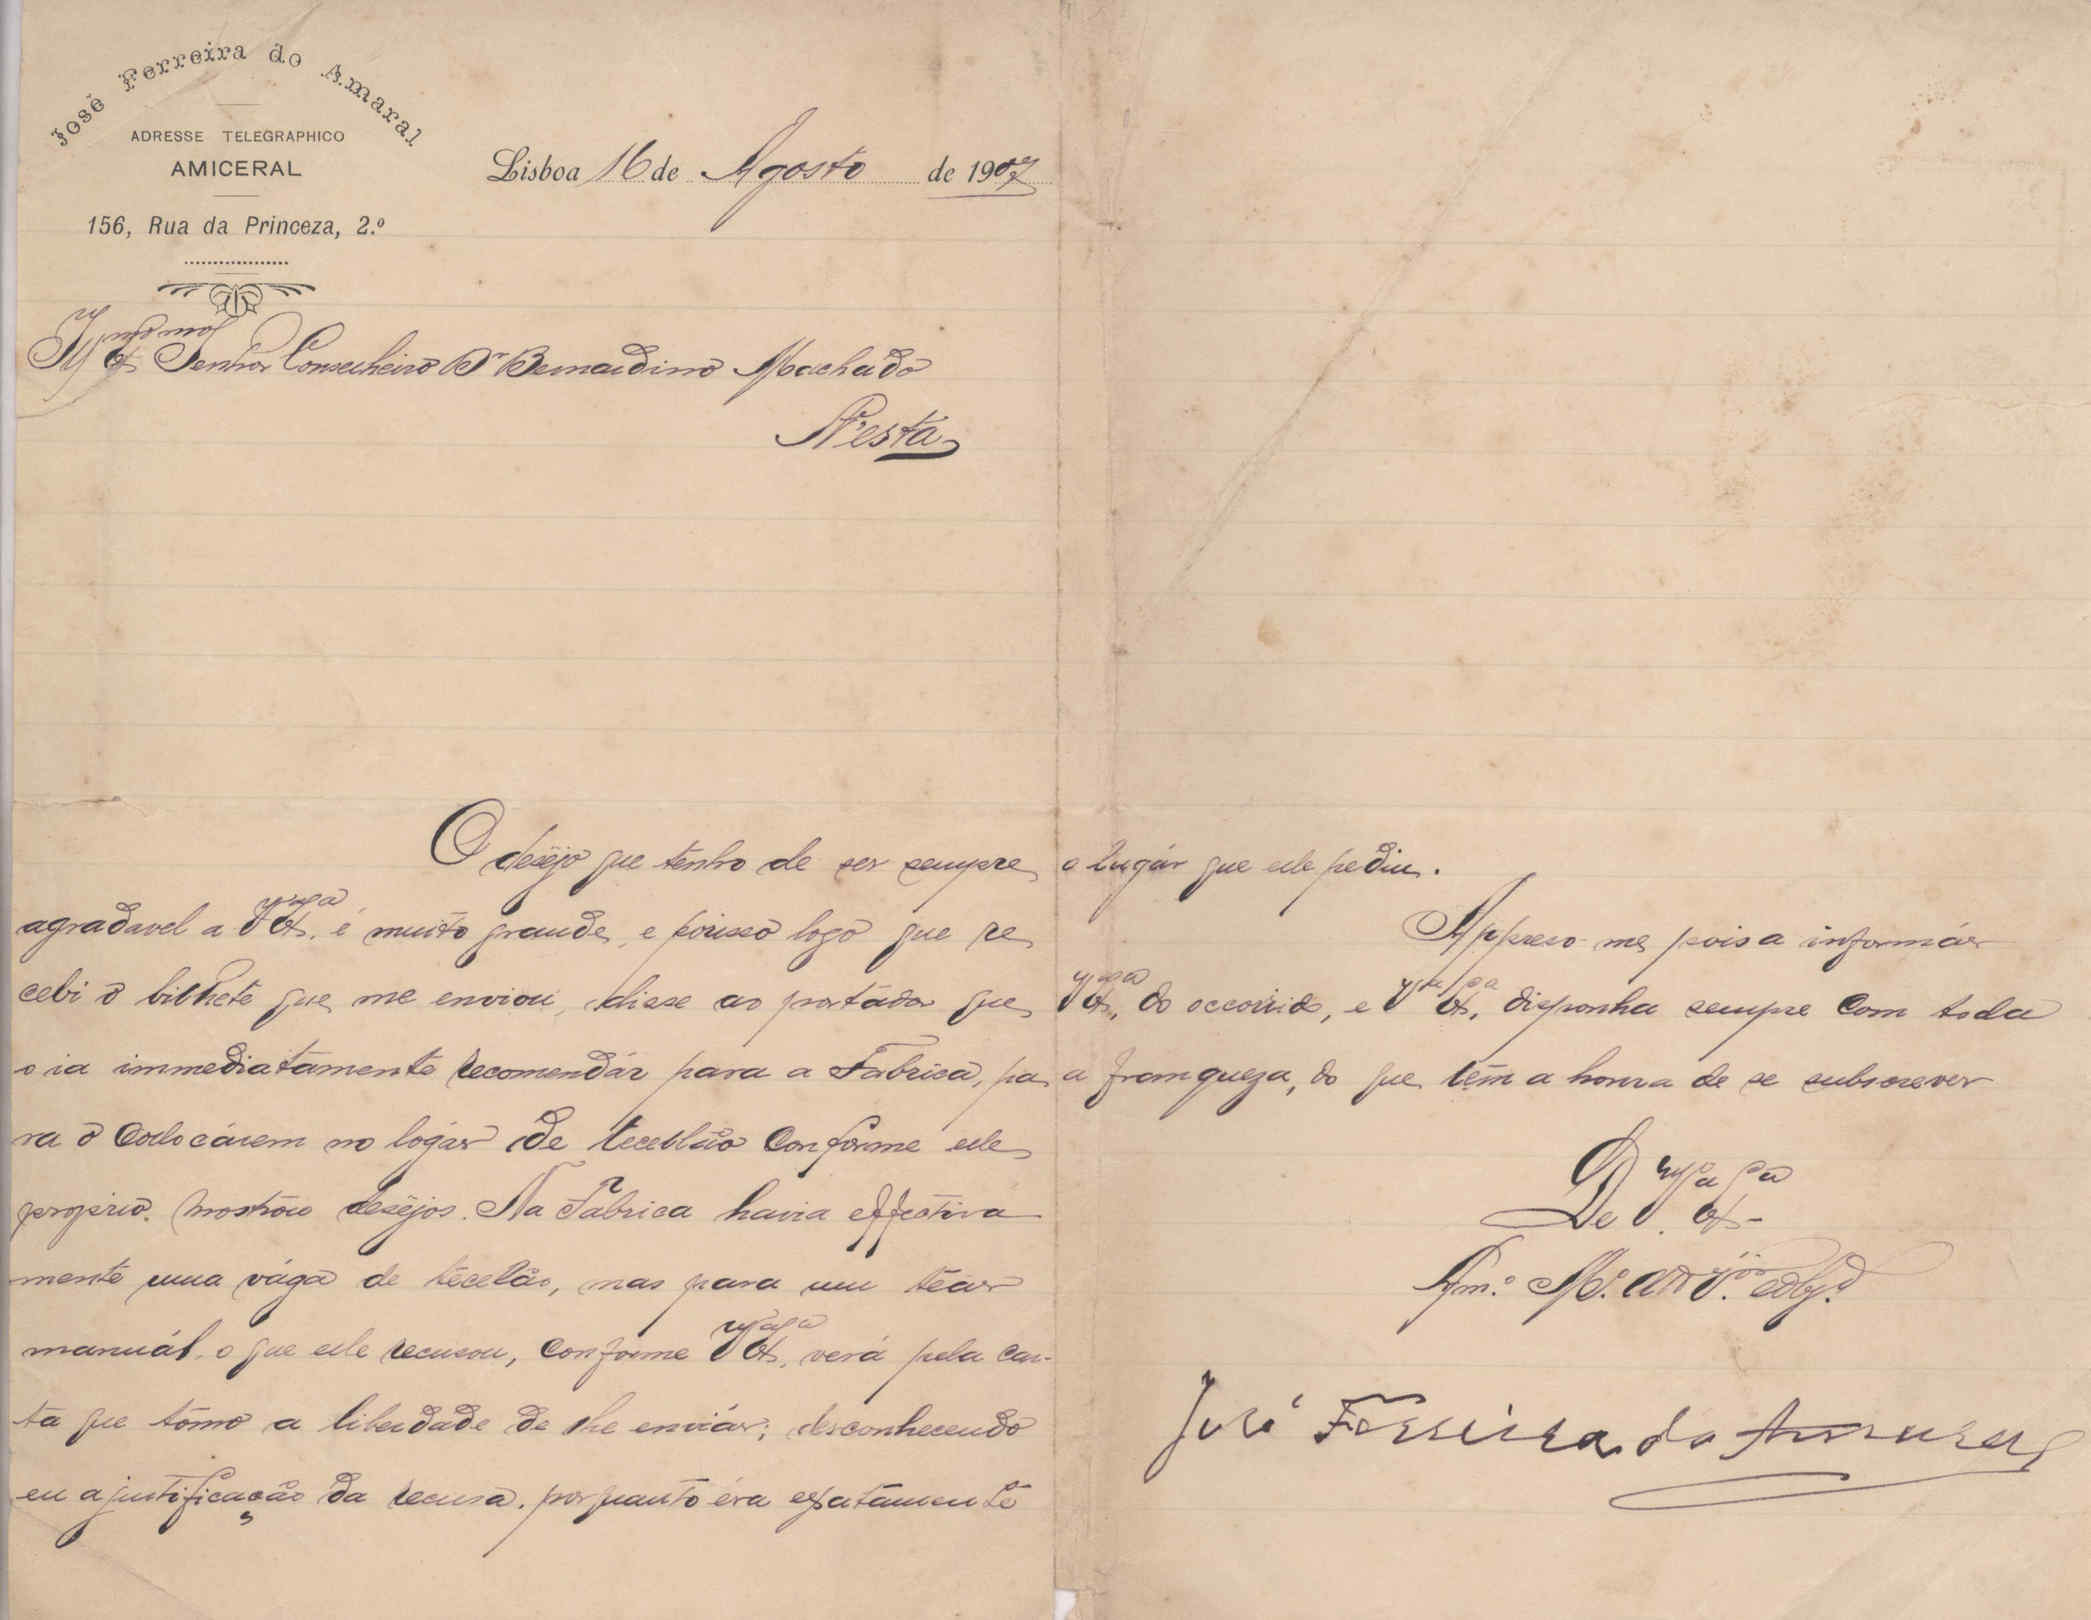 José Ferreira do Amaral
ADRESSE TELEGRAPHICO
AMICERAL
156, Rua da Princeza, 2.º
Lisboa 16 de Agosto de 1907
Illmo Exmo Senhor Conselheiro Dr Bernardino Machado
N'esta
O desejo que tenho de ser sempre
agradavel a V Exa. é muito grande, e por isso logo que re
cebi o bilhete que me enviou, disse ao portador que
o ia immediatamente recomendár para a Fabrica, pa
ra o collocárem no logár de tecellão conforme elle
proprio mostrou desejos. Na Fabrica havia effectiva
mente uma vága de tecelão, mas para um tear
manuál, o que elle recusou, conforme V Exa. verá pela car-
ta que tômo a liberdade de lhe enviár; desconhecendo
eu a justificação da recusa, porquanto éra exatamente
o lugár que elle pediu.
Appreso-me pois a informár
V Exa. do occorrido, e V Exa. disponha sempre com toda
a franqueza, do que têm a honra de se subscrever
De V. Exa
Amo. Mo. Atto Vor. Obgdo
José Ferreira do Amaral